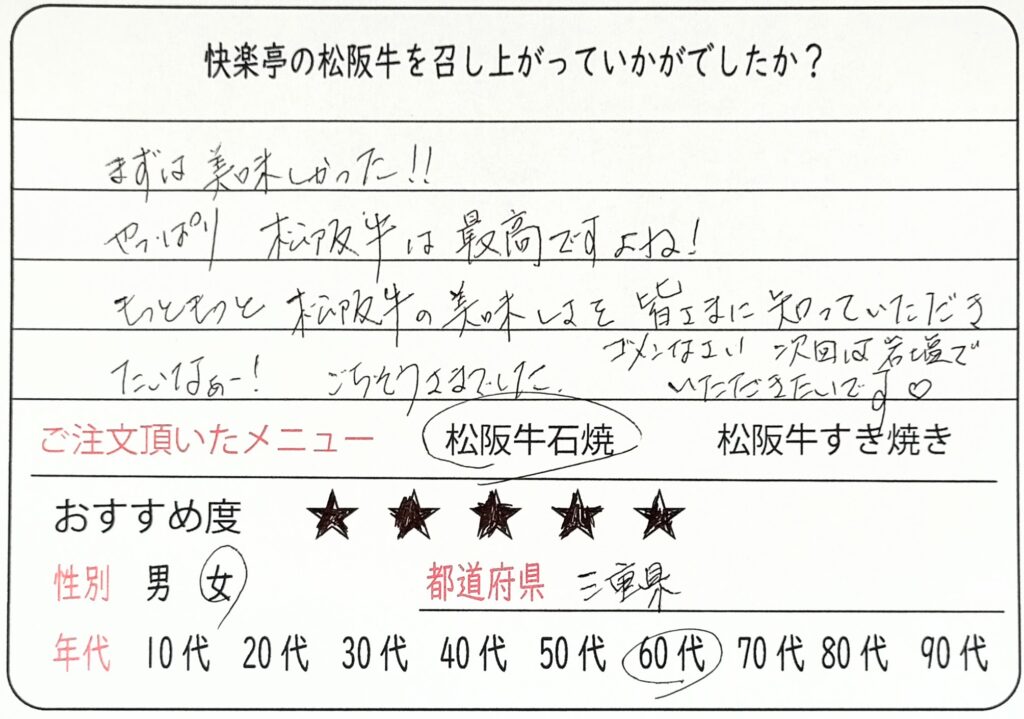 快楽亭の松阪牛を召し上がっていかがでしたか？
まずは美味しかった!!
やっぱり 松阪牛は最高ですよね！
もっともっと 松阪牛の美味しさを 皆さまに知っていただき
たいなぁー！ ごちそうさまでした.
ゴメンなさい 次回は岩塩で
いただきたいです♡
ご注文頂いたメニュー 松阪牛石焼 松阪牛すき焼き
おすすめ度 ★★★★★
性別 男 女 都道府県 三重県
年代 10代 20代 30代 40代 50代 60代 70代 80代 90代